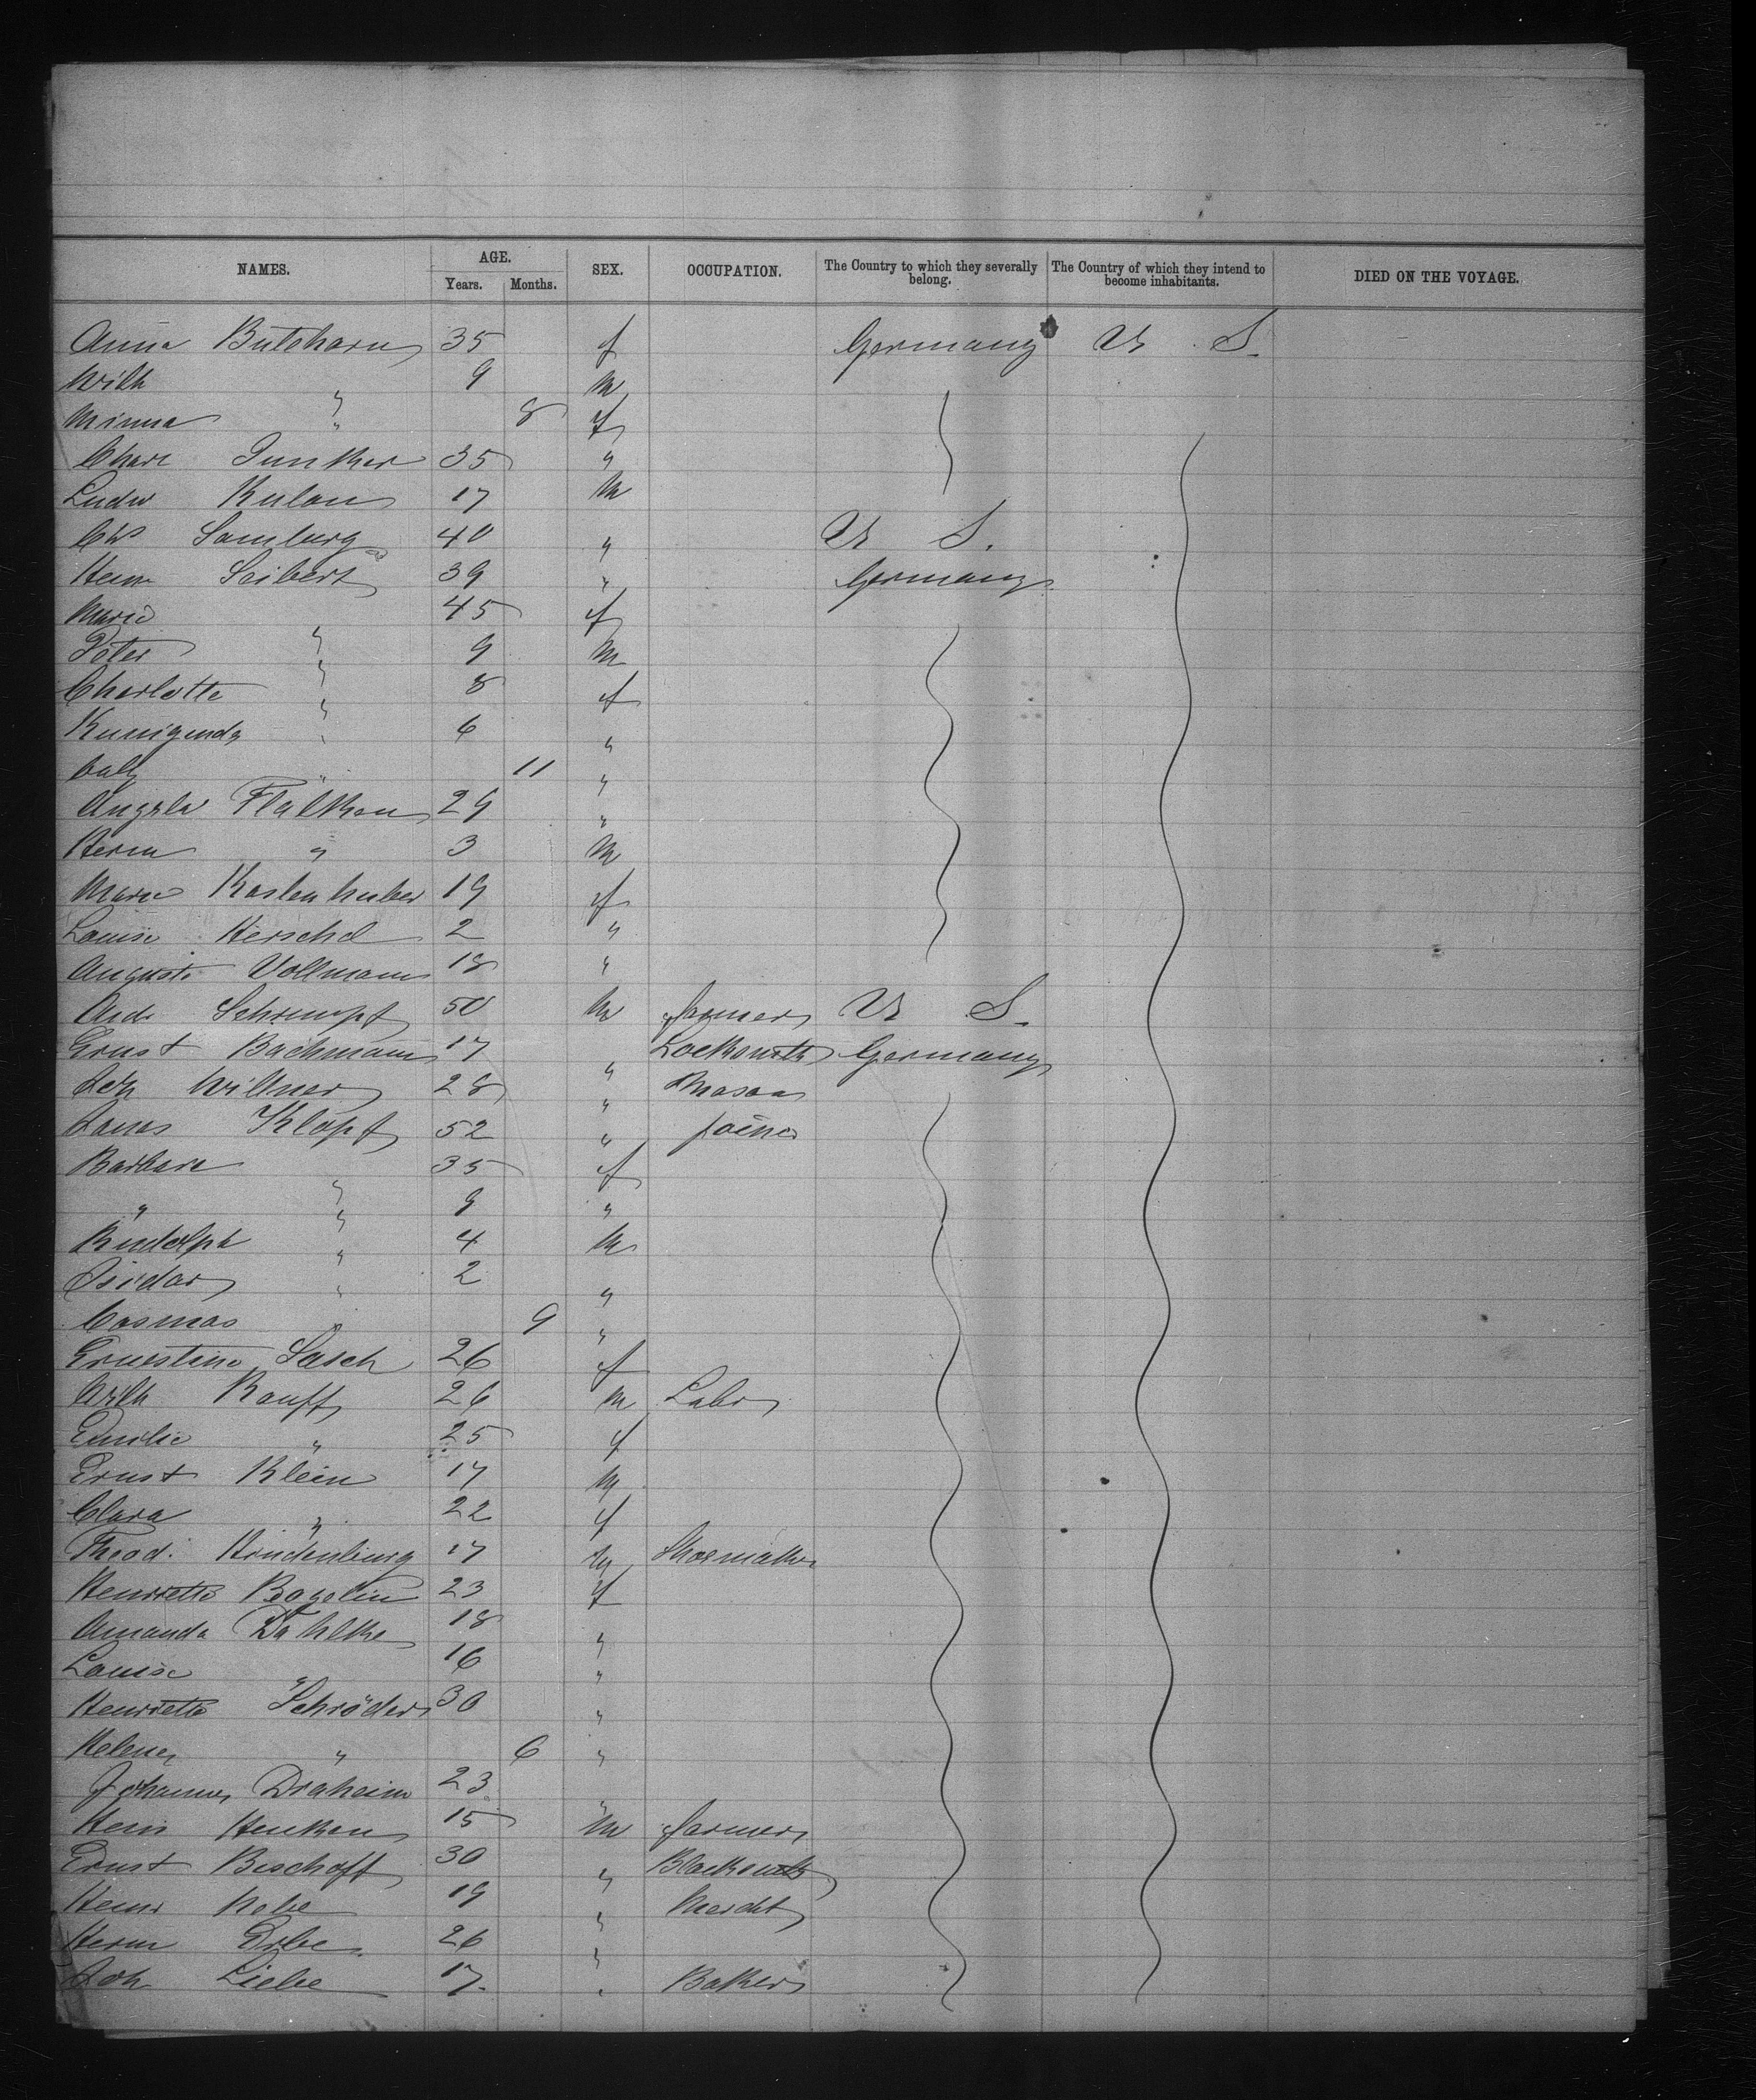 NAMES. AGE. SEX. OCCUPATION. The Country to which they severally belong. The Country of which they intend to become inhabitants. DIED ON THE VOYAGE.
Years. Months.
Anna Butehorn 35 f Germany U. S.
Wilh " 9 m
Minna " 8 f
Char Junker 35 "
Ludw Kulan 17 m
Chs Samburg 40 " U S.
Heinr Seibert 39 " Germany
Marie " 45 f
Peter " 9 m
Charlotte " 8 f
Kunigunda " 6 "
" 11 "
Angela Flalken 29 "
Herm " 3 m
Marie Kastenhuber 19 f
Louise Herschel 2 "
Auguste Vollmann 18 "
And Schrumpf 50 m farmer U S.
Ernst Bachmann 17 " Locksmith Germany
Joh Willner 28 " Mason
Klopf 52 " joiner
Barbara " 35 f
" " 9 "
Rudolph " 4 m
Isidor " 2 "
Cosmas " 9 "
Ernestine Sasch 26 f
Wilh Rauff 26 m Labr
Emilie " 25 f
Ernst Klein 17 m
Clara " 22 f
Theod. Hindenburg 17 m Shoemaker
Henriette Bogelin 23 f
Amanda Dahlke 18 "
Louise " 16 "
Henriette Schröder 30 "
Helene " 6 "
Johanne Draheim 23 "
Hein Henken 15 m farmer
Ernst Bischoff 30 " Blacksmith
Heinr Nobe 19 " Mercht
Herm Erbe. 26 "
Joh Liebe 17. " Baker